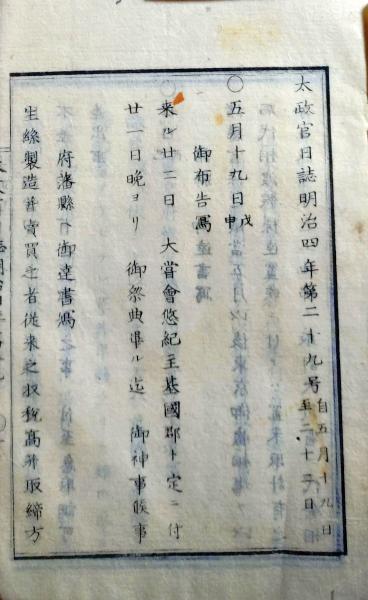 太政官日誌明治四年第二十九号 自五月十九日 至二十二日
〇五月十九日 戊申
御布告寫
来ル廿二日大嘗會悠紀主基國郡ト定ニ付
廿一日晩ヨリ御祭典畢ル迄御神事候事
府藩縣ヘ御達書寫
生絲製造并賣買之者従来之収税高并取締方